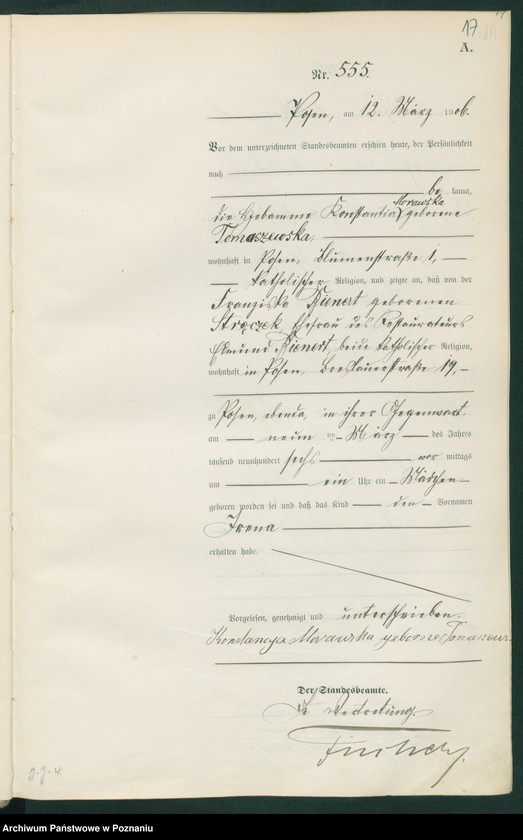 17
A.
Nr. 555.
Posen, am 12. März 1906.
Vor dem unterzeichneten Standesbeamten erschien heute, der Persönlichkeit
nach
be kannt,
die Hebamme Konstantia Morawska geborene
Tomaszewska,
wohnhaft in Posen, Blumenstraße 1,
katholischer Religion, und zeigte an, daß von der
Franziska Bienert geborenen
Stręczek, Ehefrau des Restaurateurs
Edmund Bienert, beide katholischer Religion,
wohnhaft in Posen, Breslauerstraße 19,
zu Posen, ebenda, in ihrer Gegenwart
am neun ten März des Jahres
tausend neunhundert sechs vor mittags
um ein Uhr ein Mädchen
geboren worden sei und daß das Kind den Vornamen
Irena
erhalten habe.
Vorgelesen, genehmigt und unterschrieben.
Konstancya Morawska geborne
Der Standesbeamte.
In Vertretung.
Archiwum Państwowe w Poznaniu